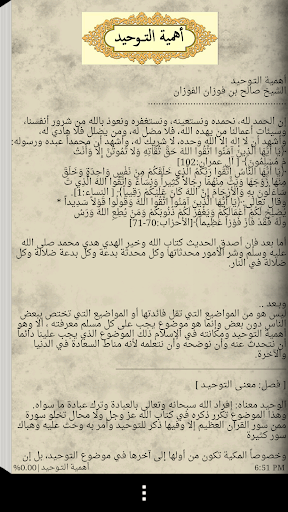 أهمية التوحيد
أهمية التوحيد
الشيخ صالح بن فوزان الفوزان
إن الحمد لله، نحمده ونستعينه، ونستغفره ونعوذ بالله من شرور أنفسنا،
وسيئات أعمالنا من يهده الله، فلا مضل له، ومن يضلل فلا هادي له،
وأشهد أن لا إله إلا الله وحده، لا شريك له، وأشهد أن محمداً عبده ورسوله:
﴿يَا أَيُّهَا الَّذِينَ آمَنُوا اتَّقُوا اللَّهَ حَقَّ تُقَاتِهِ وَلَا تَمُوتُنَّ إِلَّا وَأَنْتُمْ
مُسْلِمُونَ﴾ [آل عمران:102]
﴿يَا أَيُّهَا النَّاسُ اتَّقُوا رَبَّكُمُ الَّذِي خَلَقَكُمْ مِنْ نَفْسٍ وَاحِدَةٍ وَخَلَقَ
مِنْهَا زَوْجَهَا وَبَثَّ مِنْهُمَا رِجَالاً كَثِيراً وَنِسَاءً وَاتَّقُوا اللَّهَ الَّذِي
تَسَاءَلُونَ بِهِ وَالْأَرْحَامَ إِنَّ اللَّهَ كَانَ عَلَيْكُمْ رَقِيباً﴾ [النساء:1].
وقال تعالى:﴿يَا أَيُّهَا الَّذِينَ آمَنُوا اتَّقُوا اللَّهَ وَقُولُوا قَوْلاً سَدِيداً *
يُصْلِحْ لَكُمْ أَعْمَالَكُمْ وَيَغْفِرْ لَكُمْ ذُنُوبَكُمْ وَمَنْ يُطِعِ اللَّهَ وَرَسُولَهُ
فَقَدْ فَازَ فَوْزاً عَظِيماً﴾[الأحزاب:70-71]
أما بعد فإن أصدق الحديث كتاب الله وخير الهدي هدي محمد صلى الله
عليه وسلم وشر الأمور محدثاتها وكل محدثة بدعة وكل بدعة ضلالة وكل
ضلالة في النار.
وبعد ..
ليس هو من المواضيع التي تقل فائدتها أو المواضيع التي تختص ببعض
الناس دون بعض وإنما هو موضوع يجب على كل مسلم معرفته ، ألا وهو
أهمية التوحيد ومكانته في الإسلام ذلك الموضوع الذي يجب علينا دائما
أن نتحدث عنه وأن نوضحه وأن نتعلمه لأنه مناط السعادة في الدنيا
والآخرة.
[ فصل: معنى التوحيد ]
التوحيد معناه: إفراد الله سبحانه وتعالى بالعبادة وترك عبادة ما سواه.
وهذا الموضوع تكرر ذكره في كتاب الله عز وجل ولا مجال تخلو سورة
من سور القرآن العظيم إلا وفيها ذكر للتوحيد وأمر به وحث عليه وهناك
سور كثيرة
وخصوصاً المكية تكون من أولها إلى آخرها في موضوع التوحيد، بل إن
أهمية التوحيد|0.00%
6:51 PM